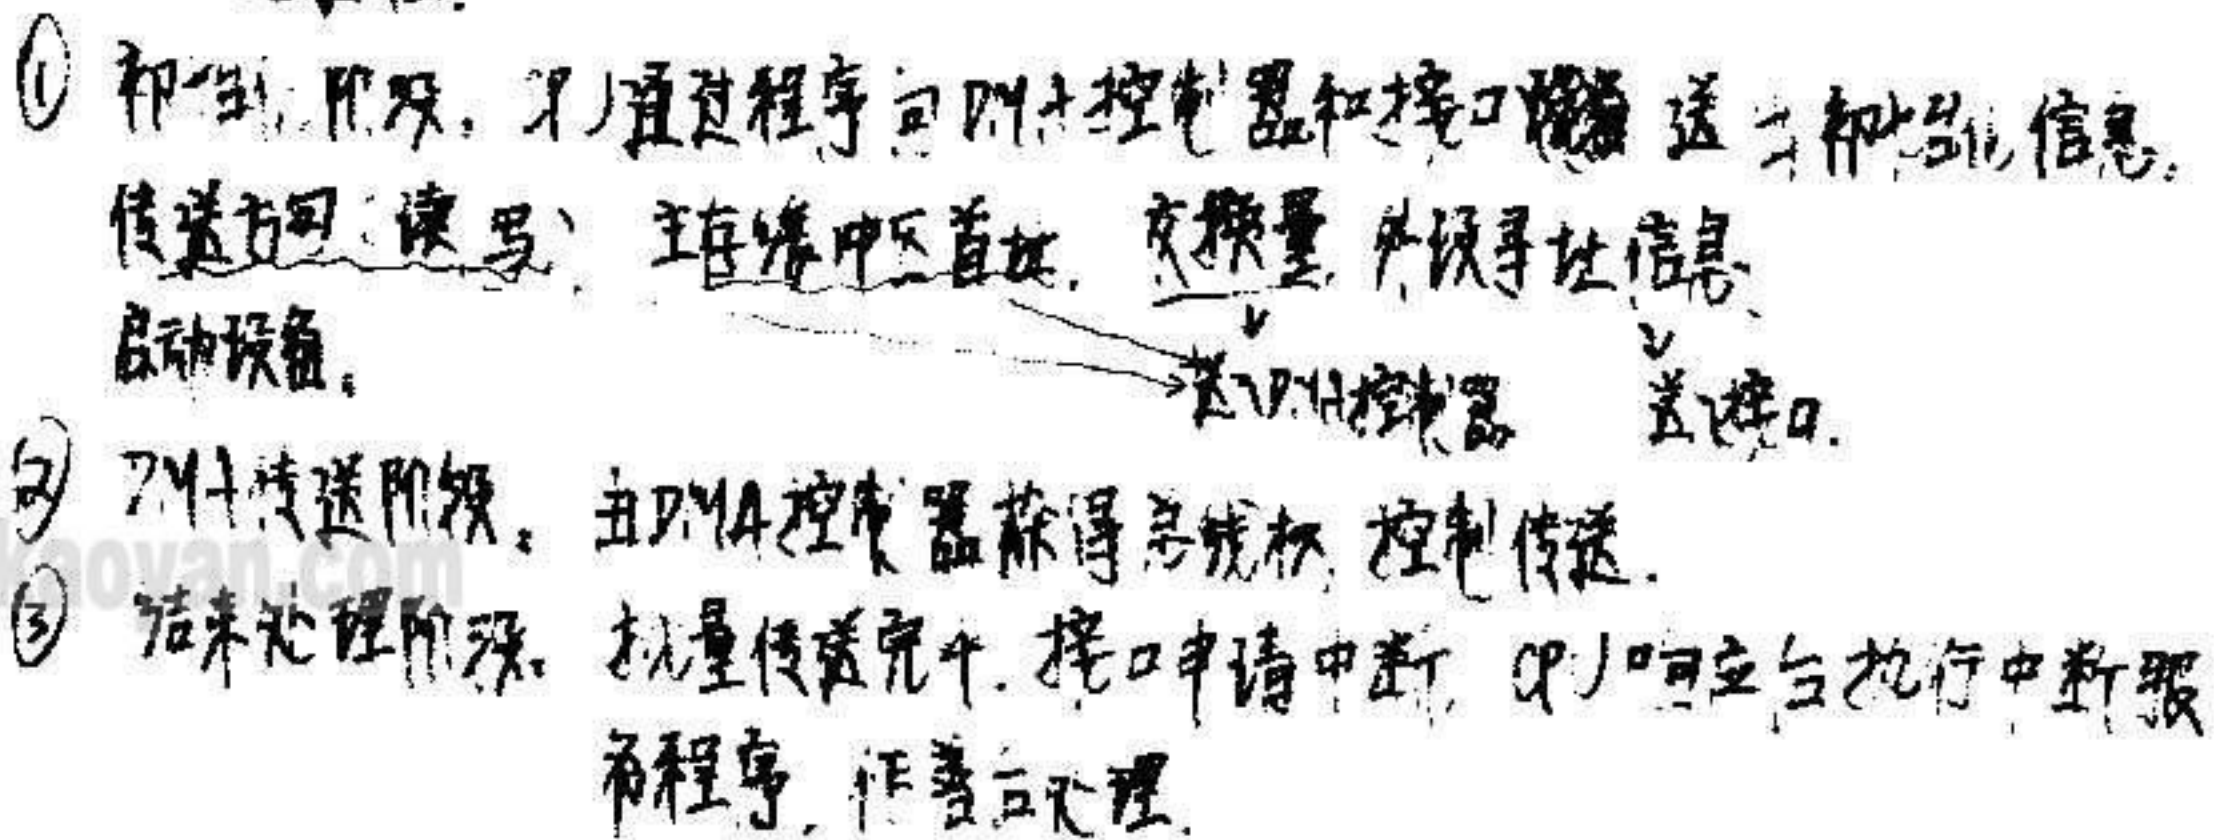 ① 初始化阶段。CPU通过程序向DMA控制器和接口送出初始化信息。
传送方向:读写、主存缓冲区首址、交换量、外设寻址信息、
启动设备。
送入DMA控制器 送入接口.
② DMA传送阶段。由DMA控制器获得总线权,控制传送.
kaoyan.com
③ 结束处理阶段。批量传送完毕.接口申请中断,CPU响应后执行中断服
务程序,作善后处理.